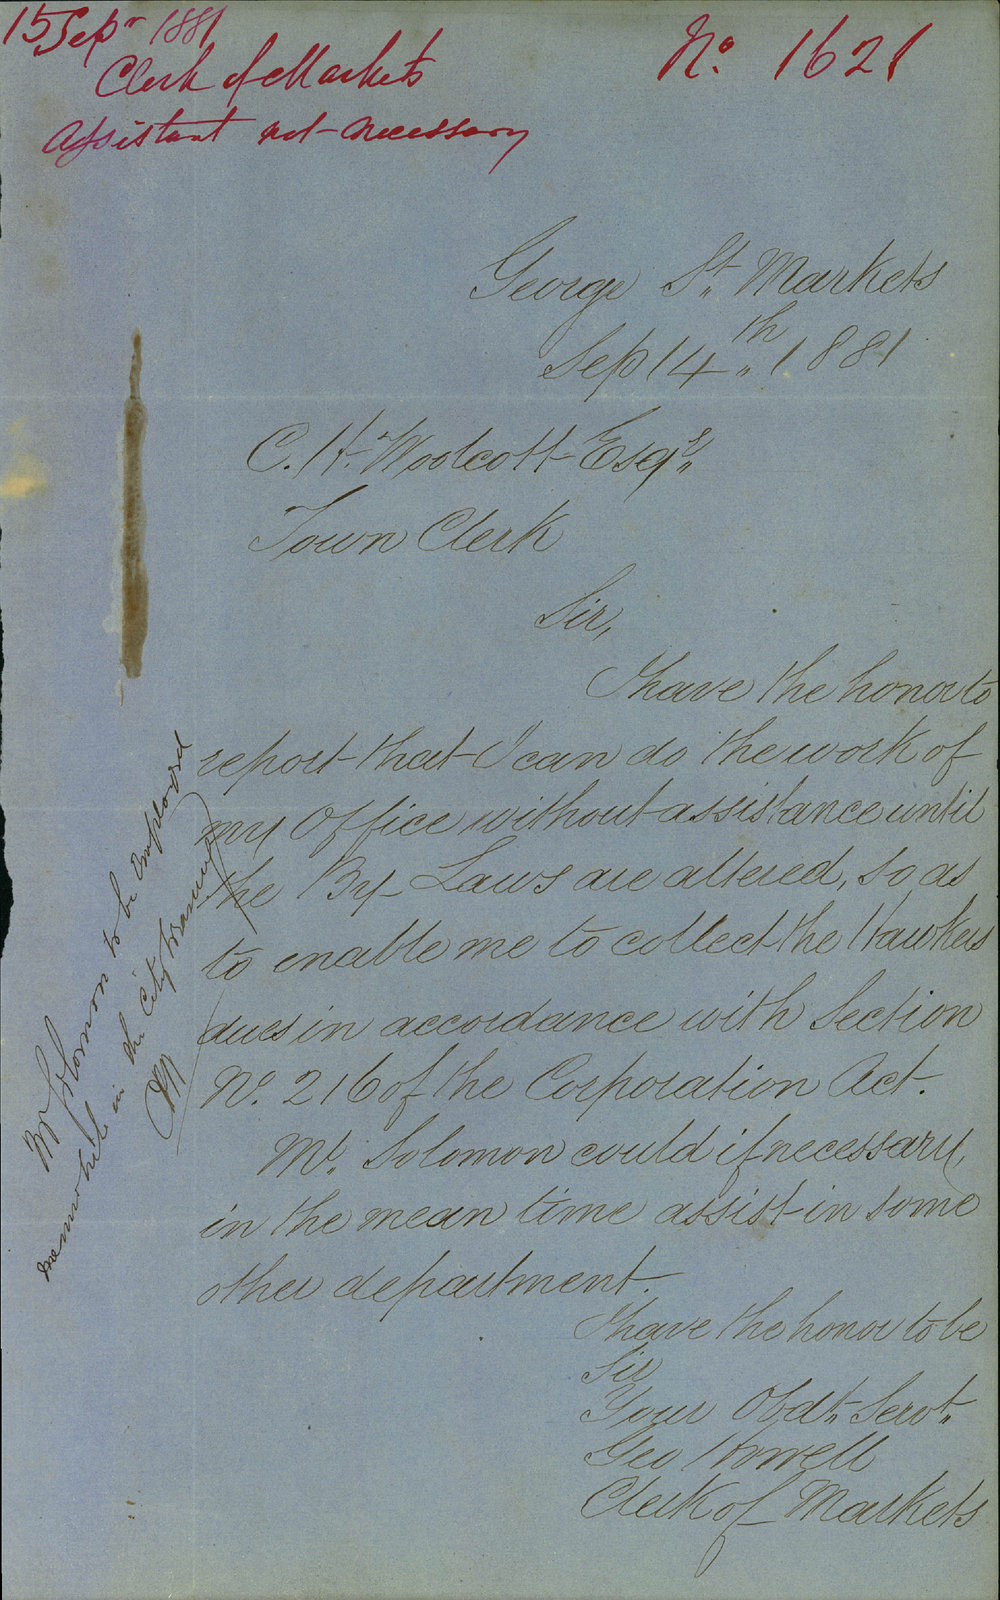 15 Sepr 1881
Clerk of Markets
Assistant not necessary
No. 1621
George St. Markets
Sep 14th 1881
C. H. Woolcott Esqr.
Town Clerk
Sir,
I have the honor to
report that I can do the work of
my Office without assistance until
the By-Laws are altered, so as
to enable me to collect the Hawkers
dues in accordance with Section
No. 216 of the Corporation Act.
Mr. Solomon could if necessary,
in the mean time assist in some
other department.
I have the honor to be
Sir
Your Obdt. Servt.
Geo Howell
Clerk of Markets
Mr Solomon to be employed
meanwhile in the City Treasury